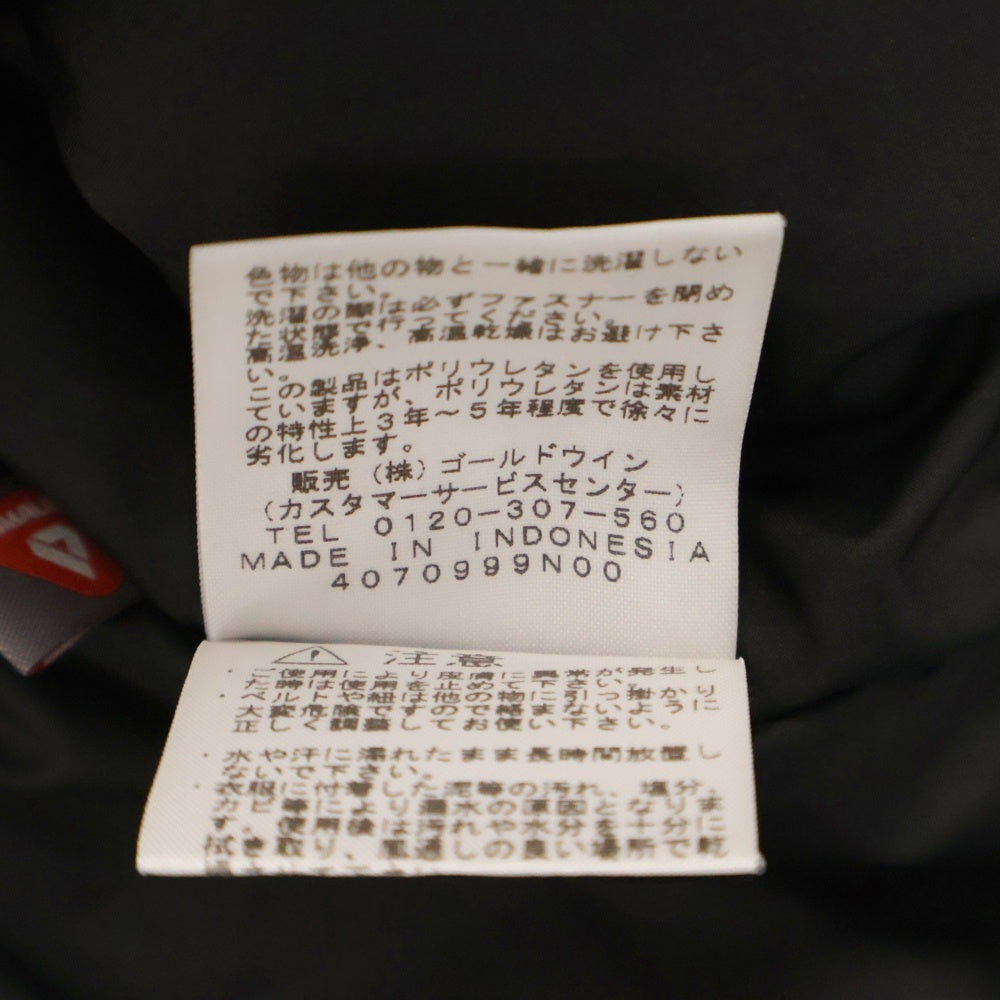 色物は他の物と一緒に洗濯しない
で下さい。
洗濯の際は必ずファスナーを閉め
た状態で行ってください。
高温洗浄、高温乾燥はお避け下さ
い。
この製品はポリウレタンを使用し
ていますが、ポリウレタンは素材
の特性上3年〜5年程度で徐々に
劣化します。
販売 (株)ゴールドウイン
(カスタマーサービスセンター)
TEL 0120-307-560
MADE IN INDONESIA
4070999N00
注意
・ご使用により皮膚に異常が発生し
た時は使用を止めて下さい。
・ベルトや紐は他の物に引っ掛かり
大変危険ですので絡まないように
正しく調整してお使い下さい。
・水や汗に濡れたまま長時間放置し
ないで下さい。
・衣服に付着した泥等の汚れ、塩分、
カビ等により漏水の原因となりま
す。使用後は汚れや水分を十分に
拭き取り、風通しの良い場所で乾